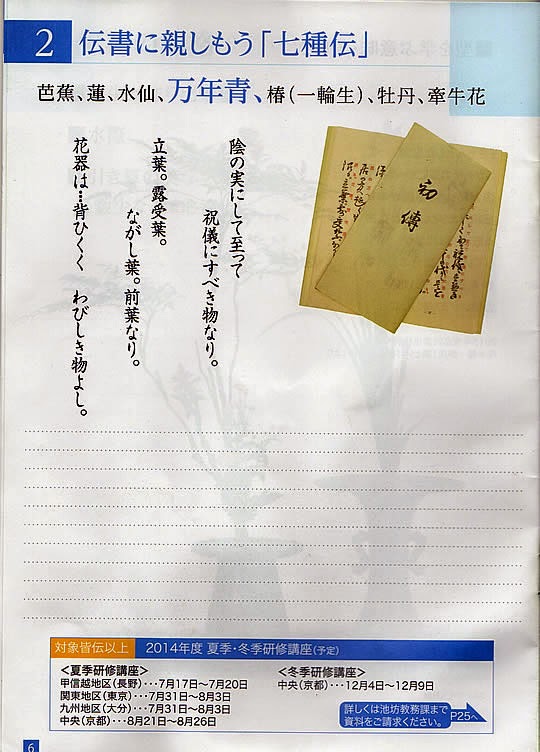 2 伝書に親しもう「七種伝」
芭蕉、蓮、水仙、万年青、椿(一輪生)、牡丹、牽牛花
陰の実にして至って
祝儀にすべき物なり。
立葉。露受葉。
ながし葉。前葉なり。
花器は…背ひくく わびしき物よし。
初傳
対象皆伝以上 2014年度 夏季・冬季研修講座(予定)
<夏季研修講座>
甲信越地区(長野)…7月17日〜7月20日
関東地区(東京)…7月31日〜8月3日
九州地区(大分)…7月31日〜8月3日
中央(京都)…8月21日〜8月26日
<冬季研修講座>
中央(京都)…12月4日〜12月9日
詳しくは池坊教務課まで
資料をご請求ください。
P25へ
6